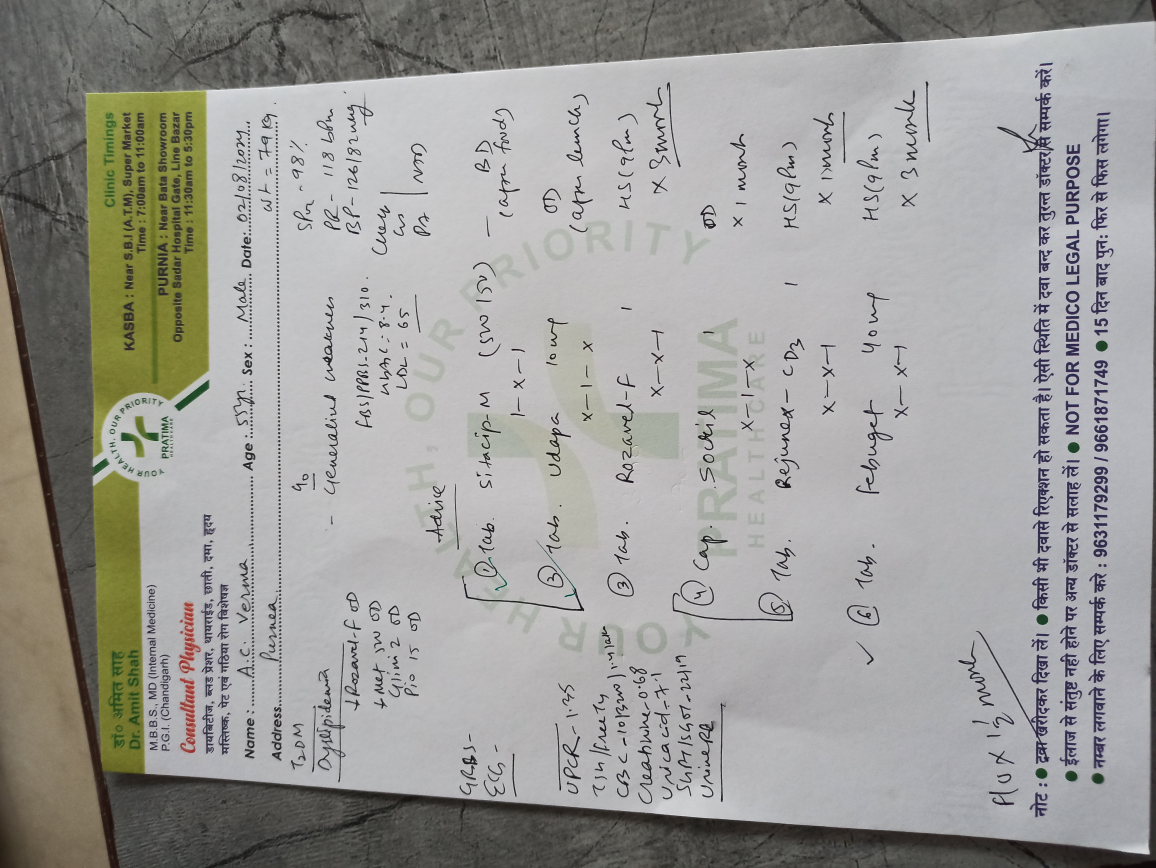 डॉ० अमित साह
Dr. Amit Shah
M.B.B.S., MD (Internal Medicine)
P.G.I. (Chandigarh)
Consultant Physician
डायबिटीज, ब्लड प्रेशर, थायराईड, छाती, दमा, हृदय
मस्तिष्क, पेट एवं गठिया रोग विशेषज्ञ
YOUR HEALTH, OUR PRIORITY
PRATIMA
HEALTH CARE
Clinic Timings
KASBA : Near S.B.I (A.T.M), Super Market
Time : 7:00am to 11:00am
PURNIA : Near Bata Showroom
Opposite Sadar Hospital Gate, Line Bazar
Time : 11:30am to 5:30pm
Name : A.C. Verma Age : 55yr. Sex : Male Date: 02/08/2024
Address Purnea Wt = 79 kg.
T2DM
Dyslipidemia
+ Rozavel-F OD
+ Met 500 OD
Glim 2 OD
Pio 15 OD
c/o
- Generalised weakness
FBS/PPBS - 214/310
HbA1c : 8.4.
LDL = 65
SPO2 - 98%
PR - 118 bpm
BP - 126/82 mmHg
Chest
CVS
PA NAD
GRBS -
ECG -
UPCR - 1.25
TSH/Free T4
Creatinine - 0.68
Uric acid - 7.1
SGPT/SGOT - 22/19
Urine RE
Advice
① Tab. Sitacip-M (500/50) - BD
1 - x - 1 (after food)
② Tab. Udapa 10mg OD
x - 1 - x (after lunch)
③ Tab. Rozavel-F 1 HS (9pm)
x - x - 1 x 3 month
④ Cap. 1 OD
x - 1 - x x 1 month
⑤ Tab. Rejunex - CD3 1 HS (9pm)
x - x - 1 x 1 month
⑥ Tab. Febuget 40mg HS (9pm)
x - x - 1 x 3 month
YOUR HEALTH, OUR PRIORITY
PRATIMA
HEALTH CARE
F/U x 1½ month
नोट : ● दवा खरीदकर दिखा लें। ● किसी भी दवासे रिएक्शन हो सकता है। ऐसी स्थिति में दवा बन्द कर तुरन्त डॉक्टर से सम्पर्क करें।
● ईलाज से संतुष्ट नही होने पर अन्य डॉक्टर से सलाह लें। ● NOT FOR MEDICO LEGAL PURPOSE
● नम्बर लगवाने के लिए सम्पर्क करे : 9631179299 / 9661871749 ● 15 दिन बाद पुन: फिर से फिस लगेगा।